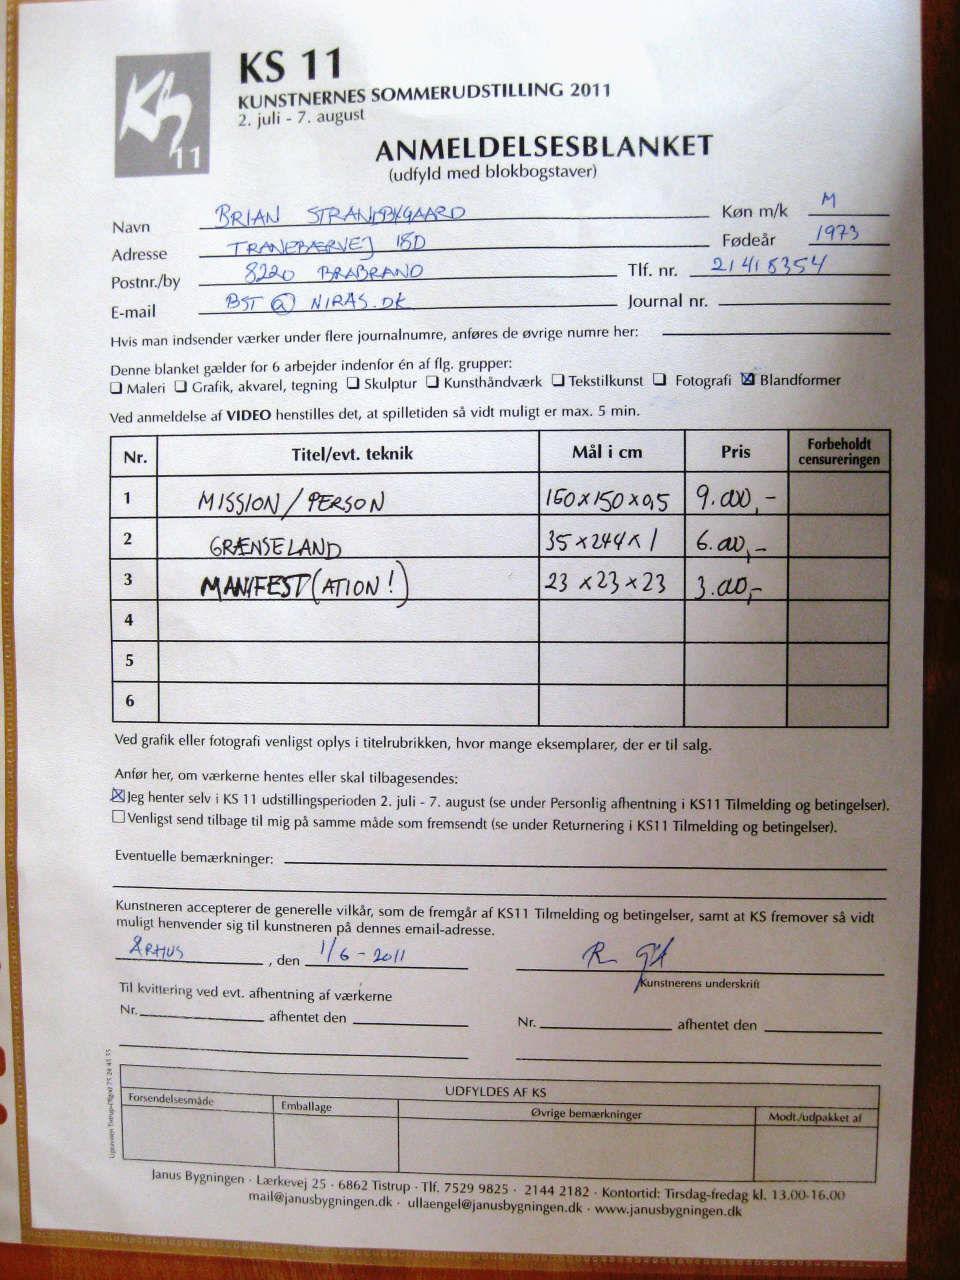 KS 11
KUNSTNERNES SOMMERUDSTILLING 2011
2. juli - 7. august
11
ANMELDELSESBLANKET
(udfyld med blokbogstaver)
Navn BRIAN STRANDBYGAARD Køn m/k M
Adresse TRANEBÆRVEJ 18D Fødeår 1973
Postnr./by 8220 BRABRAND Tlf. nr. 21418354
E-mail BST@NIRAS.DK Journal nr.
Hvis man indsender værker under flere journalnumre, anføres de øvrige numre her:
Denne blanket gælder for 6 arbejder indenfor én af flg. grupper:
❑ Maleri ❑ Grafik, akvarel, tegning ❑ Skulptur ❑ Kunsthåndværk ❑ Tekstilkunst ❑ Fotografi ☒ Blandformer
Ved anmeldelse af VIDEO henstilles det, at spilletiden så vidt muligt er max. 5 min.
Nr. Titel/evt. teknik Mål i cm Pris Forbeholdt censureringen
1 MISSION/PERSON 150x150x0,5 9.000,-
2 GRÆNSELAND 35x244x1 6.000,-
3 MANIFEST(ATION!) 23x23x23 3.000,-
4
5
6
Ved grafik eller fotografi venligst oplys i titelrubrikken, hvor mange eksemplarer, der er til salg.
Anfør her, om værkerne hentes eller skal tilbagesendes:
☒ Jeg henter selv i KS 11 udstillingsperioden 2. juli - 7. august (se under Personlig afhentning i KS11 Tilmelding og betingelser).
☐ Venligst send tilbage til mig på samme måde som fremsendt (se under Returnering i KS11 Tilmelding og betingelser).
Eventuelle bemærkninger:
Kunstneren accepterer de generelle vilkår, som de fremgår af KS11 Tilmelding og betingelser, samt at KS fremover så vidt
muligt henvender sig til kunstneren på dennes email-adresse.
ÅRHUS, den 1/6-2011
Kunstnerens underskrift
Til kvittering ved evt. afhentning af værkerne
Nr. afhentet den Nr. afhentet den
UDFYLDES AF KS
Forsendelsesmåde Emballage Øvrige bemærkninger Modt./udpakket af
Janus Bygningen · Lærkevej 25 · 6862 Tistrup · Tlf. 7529 9825 · 2144 2182 · Kontortid: Tirsdag-fredag kl. 13.00-16.00
mail@janusbygningen.dk · ullaengel@janusbygningen.dk · www.janusbygningen.dk